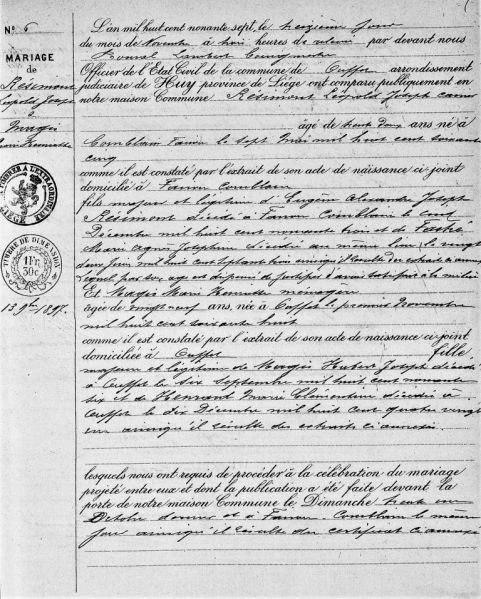 N° 6
MARIAGE
de
Résimont
Léopold Joseph
&
Magis
Marie Henriette
TIMBRE DE DIMENSION
1 Fr.
30c
13 9bre 1897.
L'an mil huit cent nonante sept, le treizième jour
du mois de Novembre à trois heures de relevée par devant nous
Lambert
Officier de l'État Civil de la commune de Ouffet arrondissement
judiciaire de Huy province de Liège ont comparu publiquement en
notre maison Commune Résimont Léopold Joseph
âgé de trente deux ans né à
Comblain Fairon le sept Mai mil huit cent soixante
cinq
comme il est constaté par l'extrait de son acte de naissance ci joint
domicilié à Fairon Comblain
fils majeur et légitime d'Eugène Alexandre Joseph
Résimont décédé à Fairon Comblain le
Décembre mil huit cent nonante trois et de
Marie Agnès Joséphine décédée au même lieu le vingt
mil huit cent septante trois ainsi qu'il résulte des extraits
Et Magis Marie Henriette ménagère
âgée de vingt neuf ans, née à Ouffet le premier Novembre
mil huit cent soixante huit
comme il est constaté par l'extrait de son acte de naissance ci-joint
domiciliée à Ouffet fille
majeure et légitime de Magis Hubert Joseph décédé
à Ouffet le six Septembre mil huit cent nonante
six et de Marie Clémentine décédée à
Ouffet le dix Décembre mil huit cent quatre vingt
un ainsi qu'il résulte des extraits ci annexés.
lesquels nous ont requis de procéder à la célébration du mariage
projeté entre eux et dont la publication a été faite devant la
porte de notre maison Commune le Dimanche trente un
Octobre dernier et à Fairon Comblain le même
jour ainsi qu'il résulte du certificat ci annexé